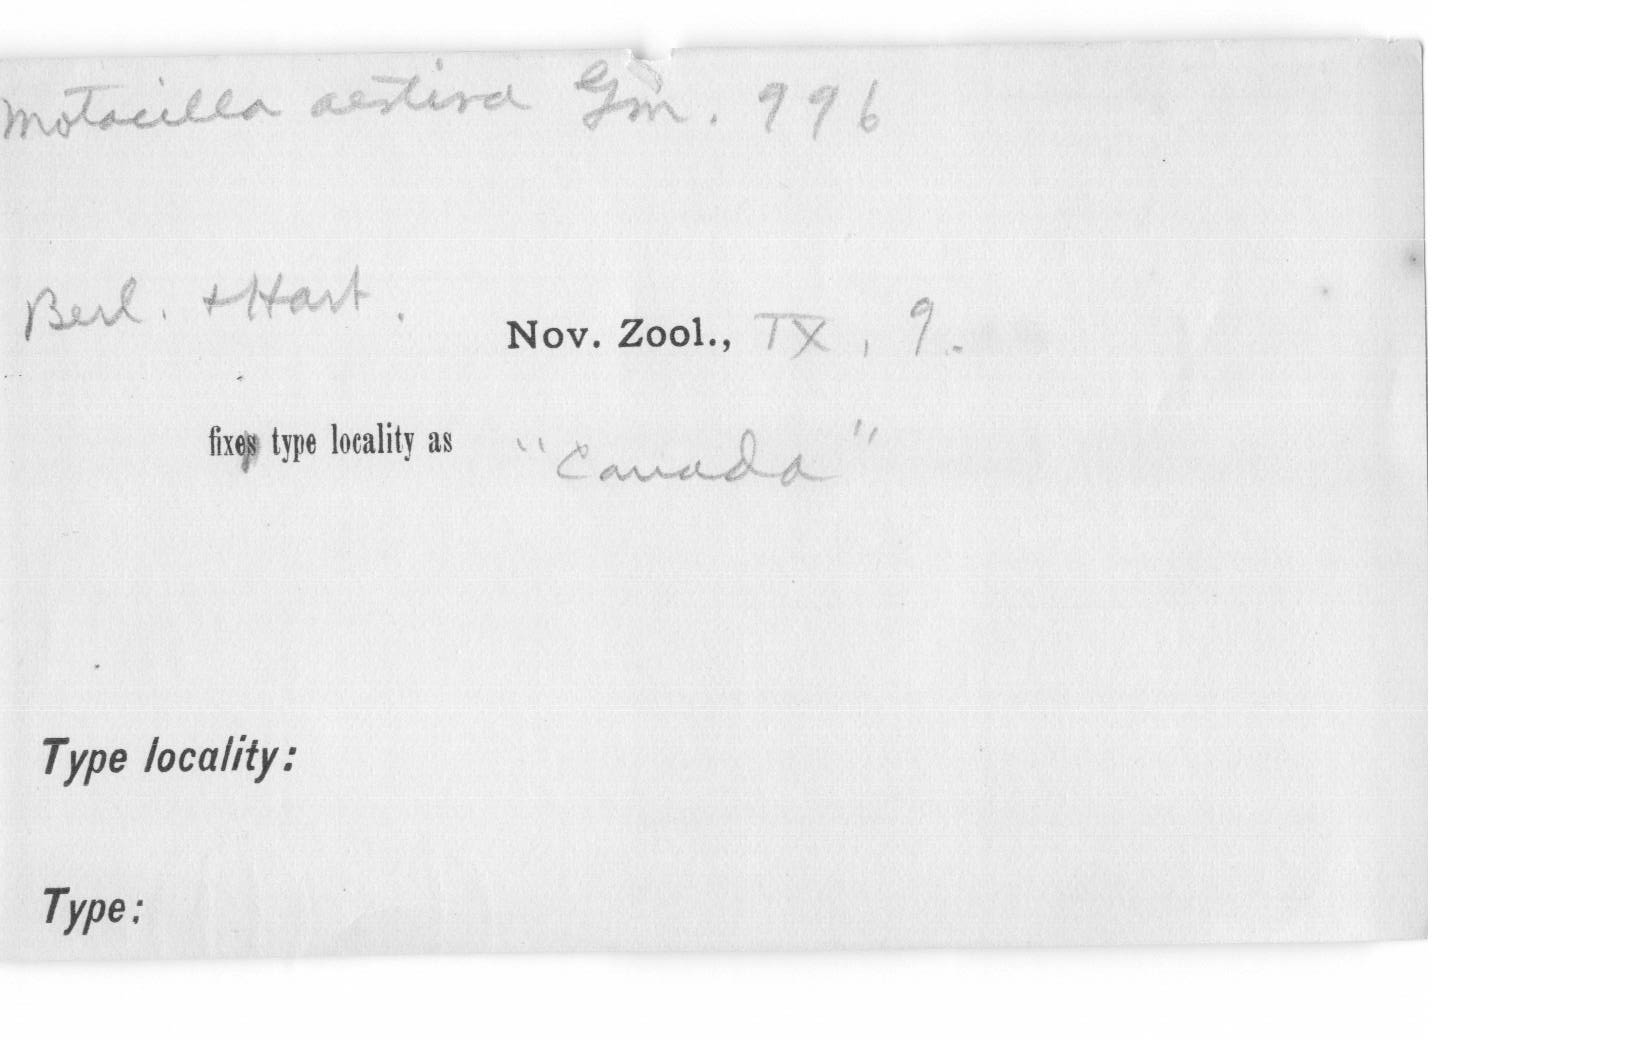 Motacilla aestiva Gm. 996
Berl. + Hart.
Nov. Zool., IX, 9.
fixes type locality as "Canada"
Type locality:
Type: